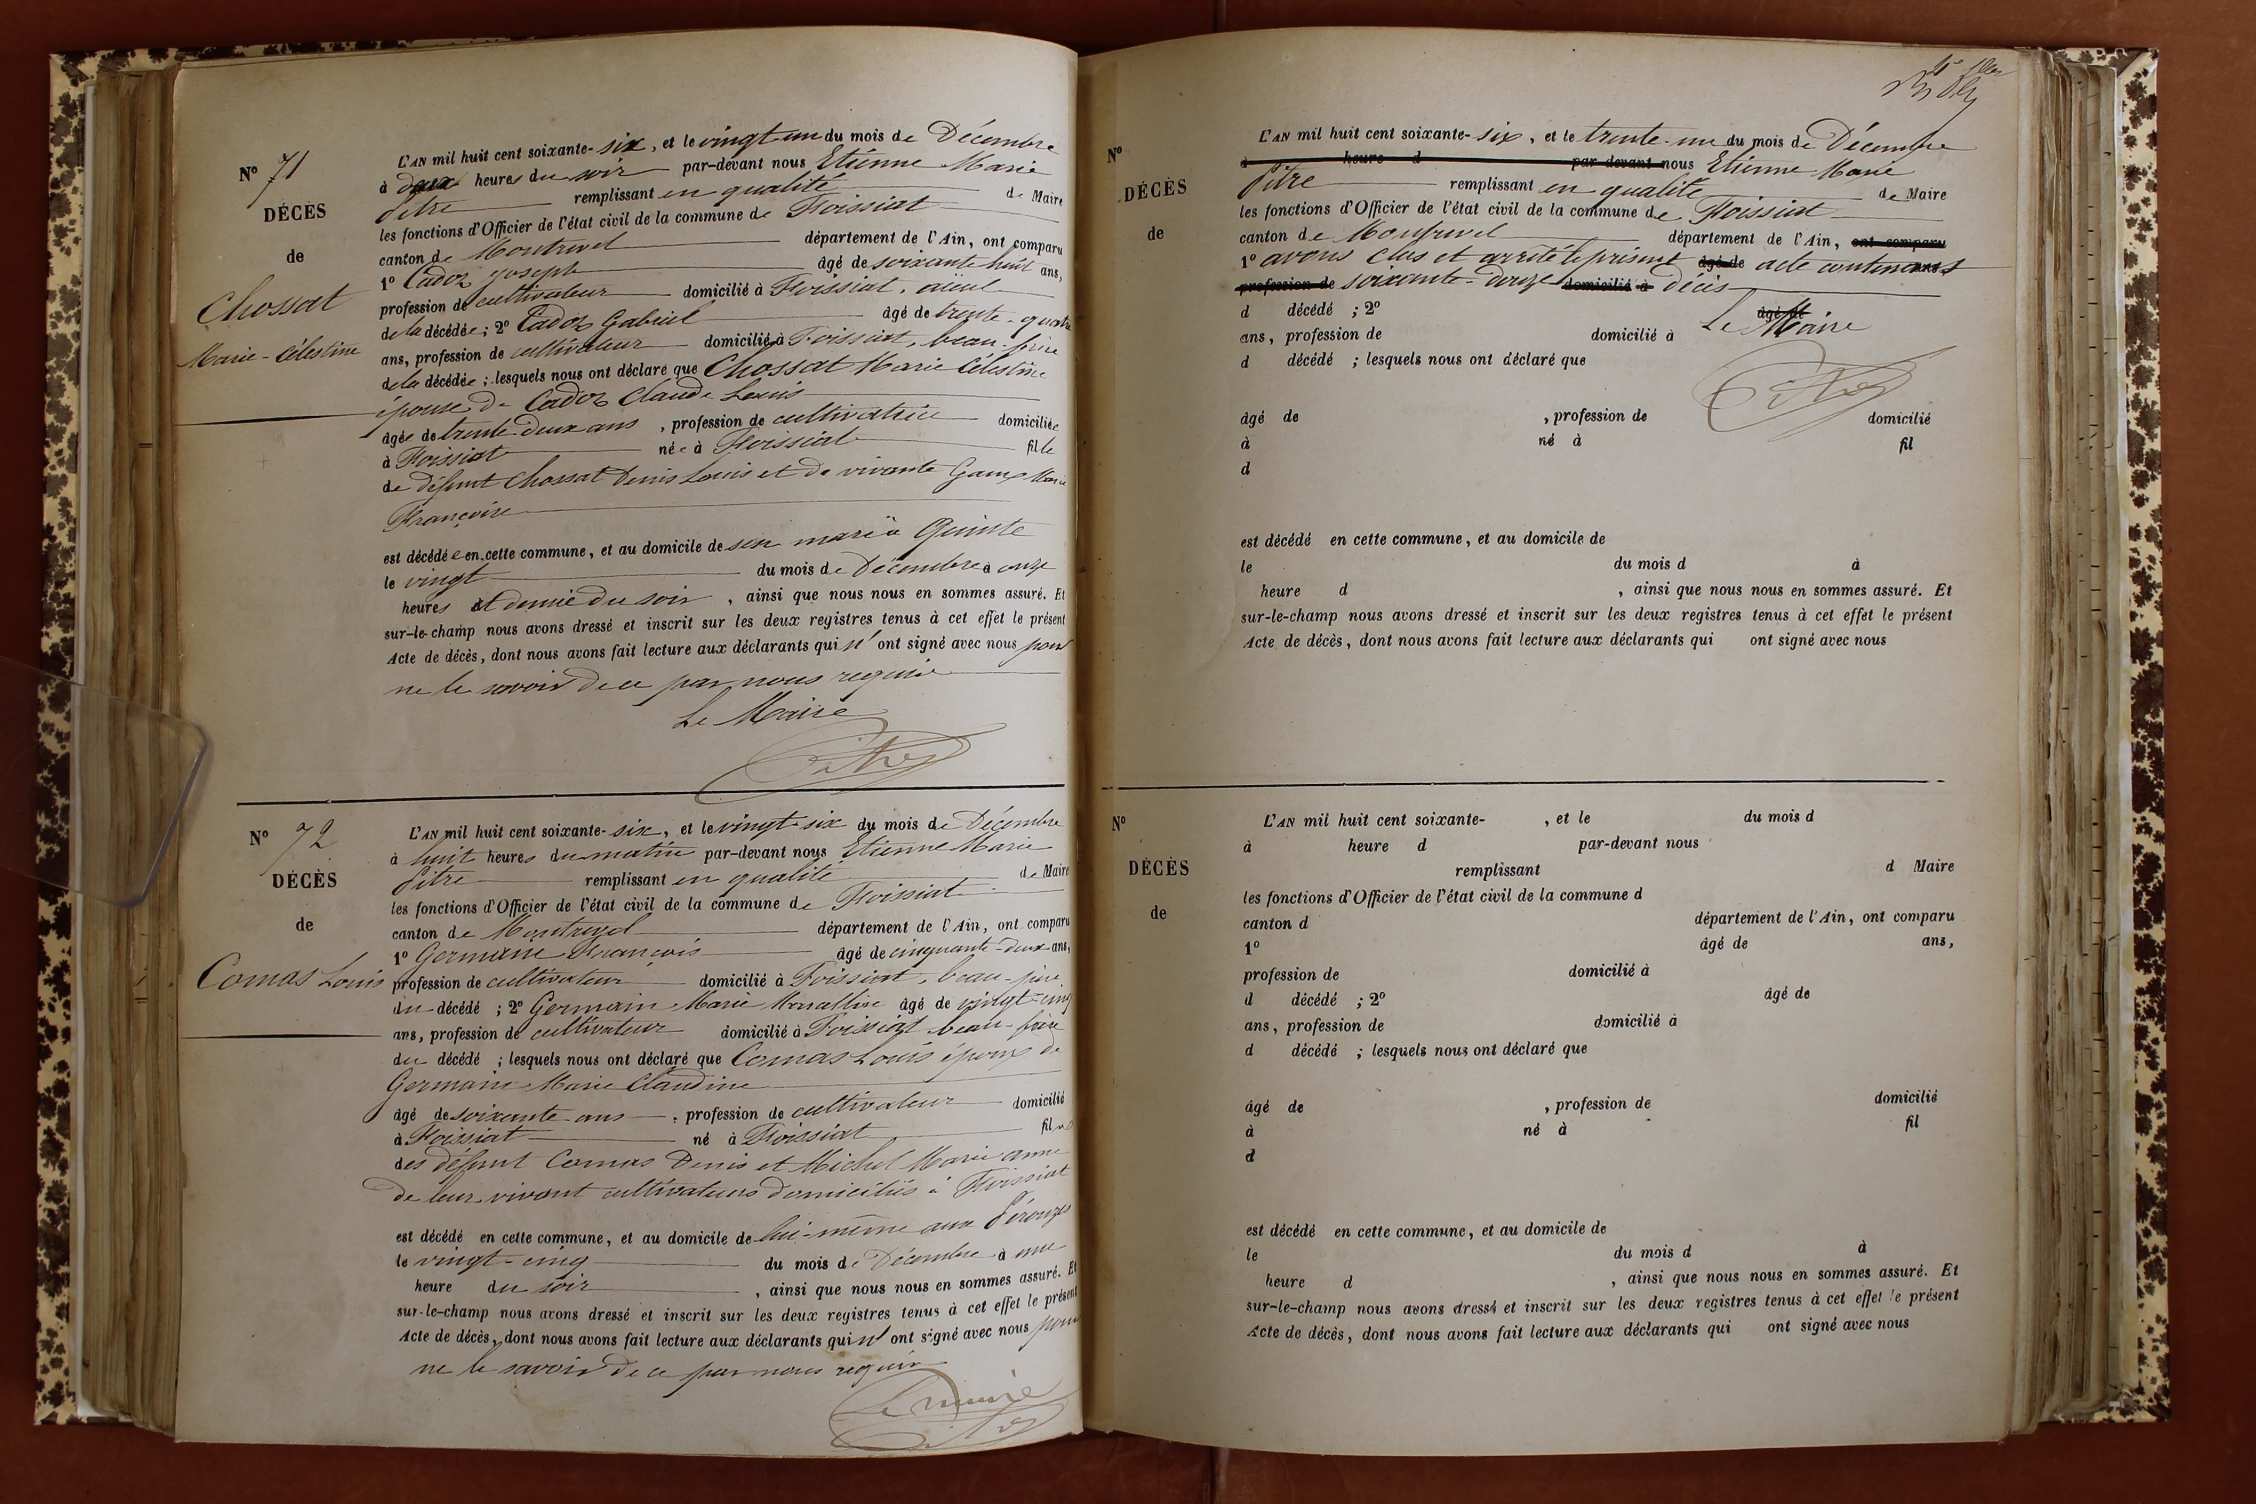 N° 71
DÉCÈS
de
Chossat
Marie-Célestine
L'AN mil huit cent soixante-six, et le vingt-un du mois de Décembre
à deux heures du soir par-devant nous Etienne Marie
Pitre remplissant en qualité de Maire
les fonctions d'Officier de l'état civil de la commune de Foissiat
canton de Montrevel département de l'Ain, ont comparu
1° Cadoz Joseph âgé de soixante huit ans,
profession de cultivateur domicilié à Foissiat, aïeul
de la décédée ; 2° Cadoz Gabriel âgé de trente-quatre
ans, profession de cultivateur domicilié à Foissiat, beau-frère
de la décédée ; lesquels nous ont déclaré que Chossat Marie Célestine
épouse de Cadoz Claude Louis
âgée de trente deux ans, profession de cultivatrice domiciliée
à Foissiat née à Foissiat fille
de défunt Chossat Denis Louis et de vivante Marie
Françoise
est décédée en cette commune, et au domicile de son mari à Quinte
le vingt du mois de Décembre à onze
heures et demie du soir, ainsi que nous nous en sommes assuré. Et
sur-le-champ nous avons dressé et inscrit sur les deux registres tenus à cet effet le présent
Acte de décès, dont nous avons fait lecture aux déclarants qui n'ont signé avec nous pour
ne le savoir de ce par nous requis
Le Maire
Pitre
N° 72
DÉCÈS
de
Comas Louis
L'AN mil huit cent soixante-six, et le vingt-six du mois de Décembre
à huit heures du matin par-devant nous Etienne Marie
Pitre remplissant en qualité de Maire
les fonctions d'Officier de l'état civil de la commune de Foissiat
canton de Montrevel département de l'Ain, ont comparu
1° Germain François âgé de cinquante-deux ans,
profession de cultivateur domicilié à Foissiat, beau-père
du décédé ; 2° Germain Marie âgé de vingt-cinq
ans, profession de cultivateur domicilié à Foissiat beau-frère
du décédé ; lesquels nous ont déclaré que Comas Louis époux de
Germain Marie Claudine
âgé de soixante ans, profession de cultivateur domicilié
à Foissiat né à Foissiat fils
des défunt Comas Denis et Michel Marie anne
de leur vivant cultivateurs domiciliés à Foissiat
est décédé en cette commune, et au domicile de lui-même aux
le vingt-cinq du mois de Décembre à une
heure du soir, ainsi que nous nous en sommes assuré. Et
sur-le-champ nous avons dressé et inscrit sur les deux registres tenus à cet effet le présent
Acte de décès, dont nous avons fait lecture aux déclarants qui n'ont signé avec nous pour
ne le savoir de ce par nous requis
Le maire
Pitre
N°
DÉCÈS
de
L'AN mil huit cent soixante-six, et le trente-un du mois de Décembre
à heure d par-devant nous Etienne Marie
Pitre remplissant en qualité de Maire
les fonctions d'Officier de l'état civil de la commune de Foissiat
canton de Montrevel département de l'Ain, ont comparu
1° avons clos et arrêté le présent âgé de acte contenant
profession de soixante-douze domicilié à décès
d décédé ; 2° âgé de
Le Maire
ans, profession de domicilié à
d décédé ; lesquels nous ont déclaré que
Pitre
âgé de , profession de domicilié
à né à fil
d
est décédé en cette commune, et au domicile de
le du mois d à
heure d , ainsi que nous nous en sommes assuré. Et
sur-le-champ nous avons dressé et inscrit sur les deux registres tenus à cet effet le présent
Acte de décès, dont nous avons fait lecture aux déclarants qui ont signé avec nous
N°
DÉCÈS
de
L'AN mil huit cent soixante- , et le du mois d
à heure d par-devant nous
remplissant d Maire
les fonctions d'Officier de l'état civil de la commune d
canton d département de l'Ain, ont comparu
1° âgé de ans,
profession de domicilié à
d décédé ; 2° âgé de
ans, profession de domicilié à
d décédé ; lesquels nous ont déclaré que
âgé de , profession de domicilié
à né à fil
d
est décédé en cette commune, et au domicile de
le du mois d à
heure d , ainsi que nous nous en sommes assuré. Et
sur-le-champ nous avons dressé et inscrit sur les deux registres tenus à cet effet le présent
Acte de décès, dont nous avons fait lecture aux déclarants qui ont signé avec nous